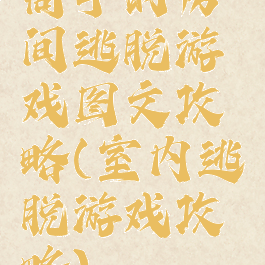 间逃脱游
戏图文攻
略(室内逃
脱游戏攻
略)